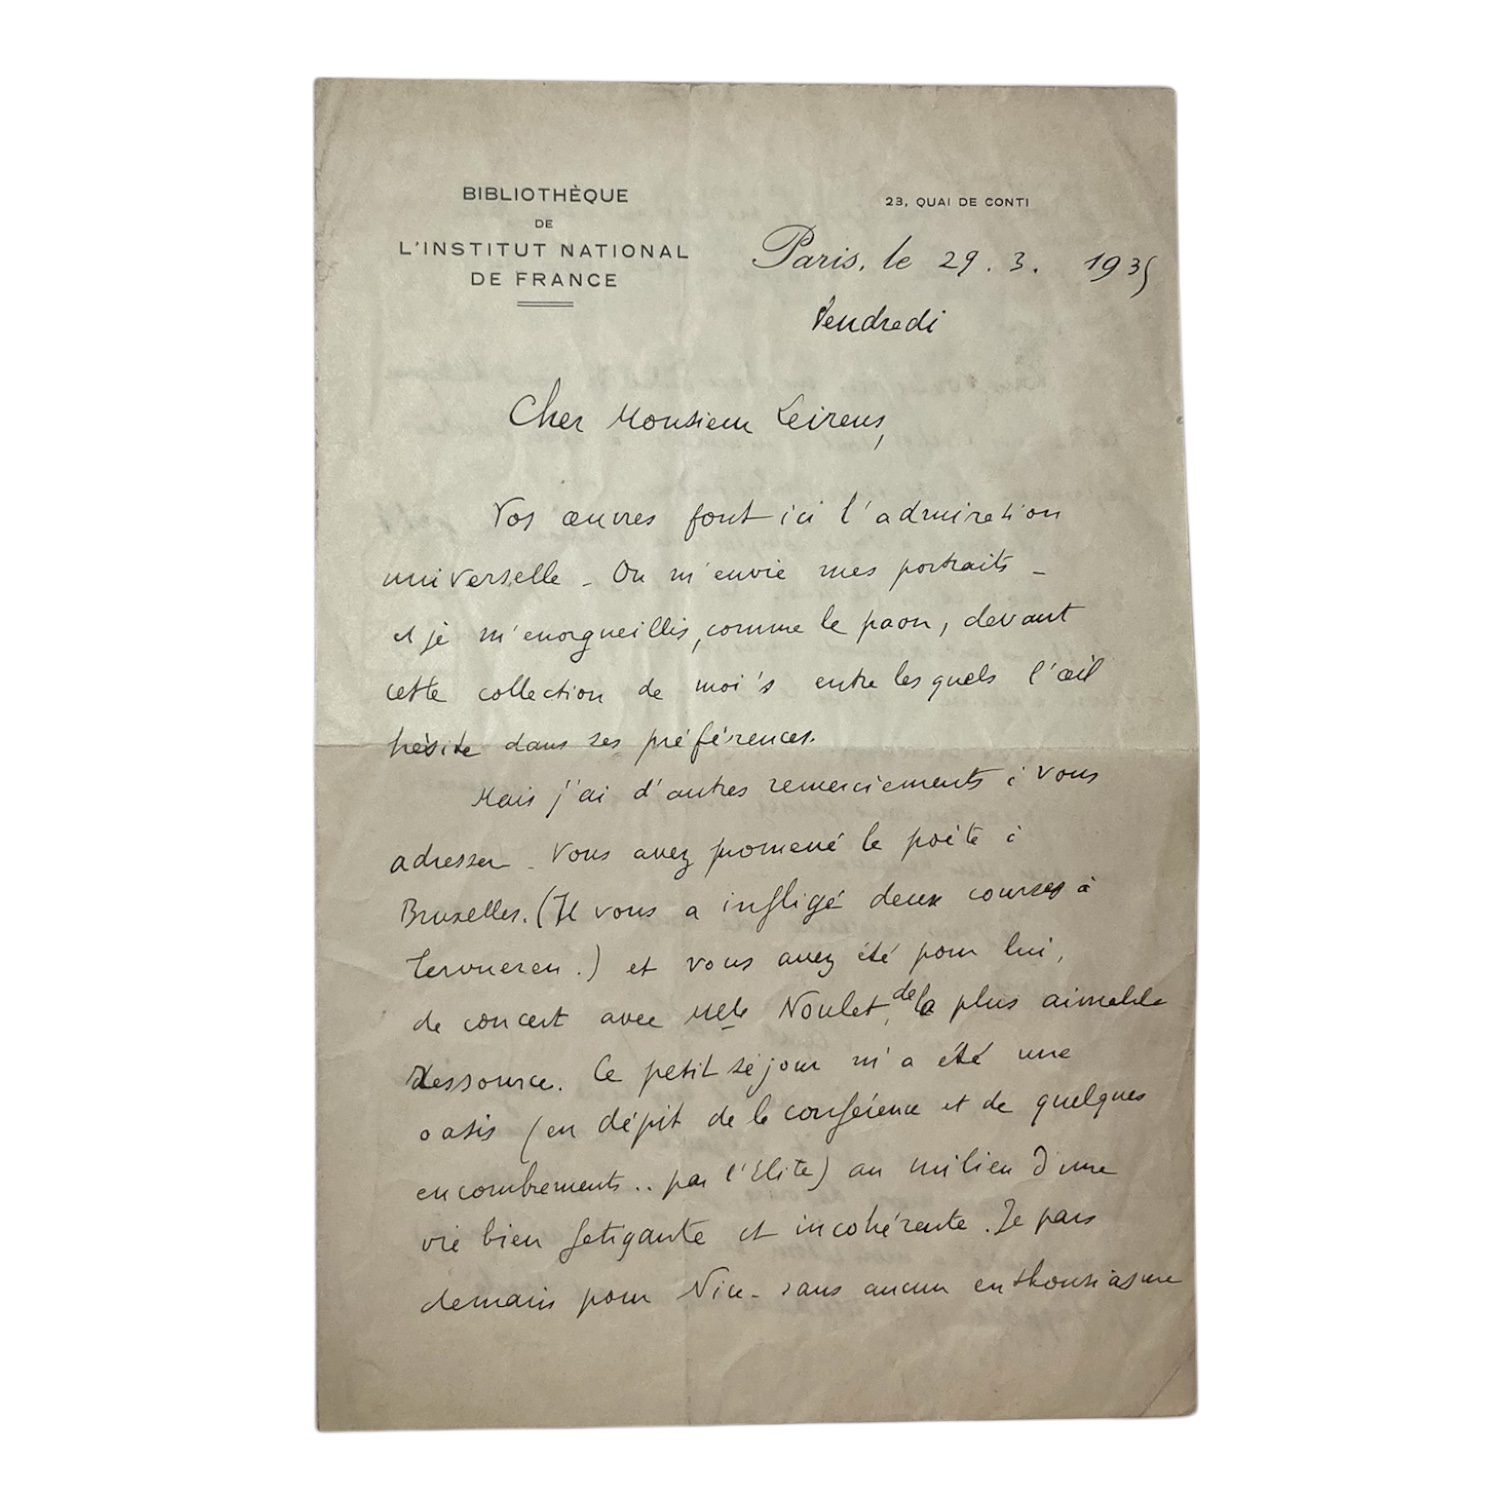 BIBLIOTHÈQUE
DE
L'INSTITUT NATIONAL
DE FRANCE
23, QUAI DE CONTI
Paris, le 29. 3. 1935
Vendredi
Cher Monsieur Leirens,
Vos œuvres font ici l'admiration
universelle - On m'envie mes portraits -
et je m'enorgueillis, comme le paon, devant
cette collection de moi's entre lesquels l'œil
hésite dans ses préférences.
Mais j'ai d'autres remerciements à vous
adresser - Vous avez promené le poète à
Bruxelles. (Il vous a infligé deux courses à
Tervueren.) et vous avez été pour lui,
de concert avec Melle Noulet, de la plus aimable
Ressource. Ce petit séjour m'a été une
oasis (en dépit de la conférence et de quelques
encombrements.. par l'Elite) au milieu d'une
vie bien fatigante et incohérente. Je pars
demain pour Nice - sans aucun enthousiasme